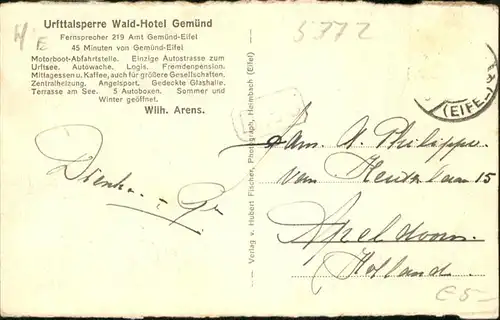 Urfttalsperre Wald-Hotel Gemünd
Fernsprecher 219 Amt Gemünd-Eifel
45 Minuten von Gemünd-Eifel
Motorboot-Abfahrtstelle. Einzige Autostrasse zum
Urftsee. Autowache. Logis. Fremdenpension.
Mittagessen u. Kaffee, auch für größere Gesellschaften.
Zentralheizung. Angelsport. Gedeckte Glashalle.
Terrasse am See. 5 Autoboxen. Sommer und
Winter geöffnet.
Wilh. Arens.
5772
(EIFEL)
Verlag v. Hubert Fischer, Photograph, Heimbach (Eifel)
Fam. A. Philippe
van 15
Apeldoorn
Holland
€5-